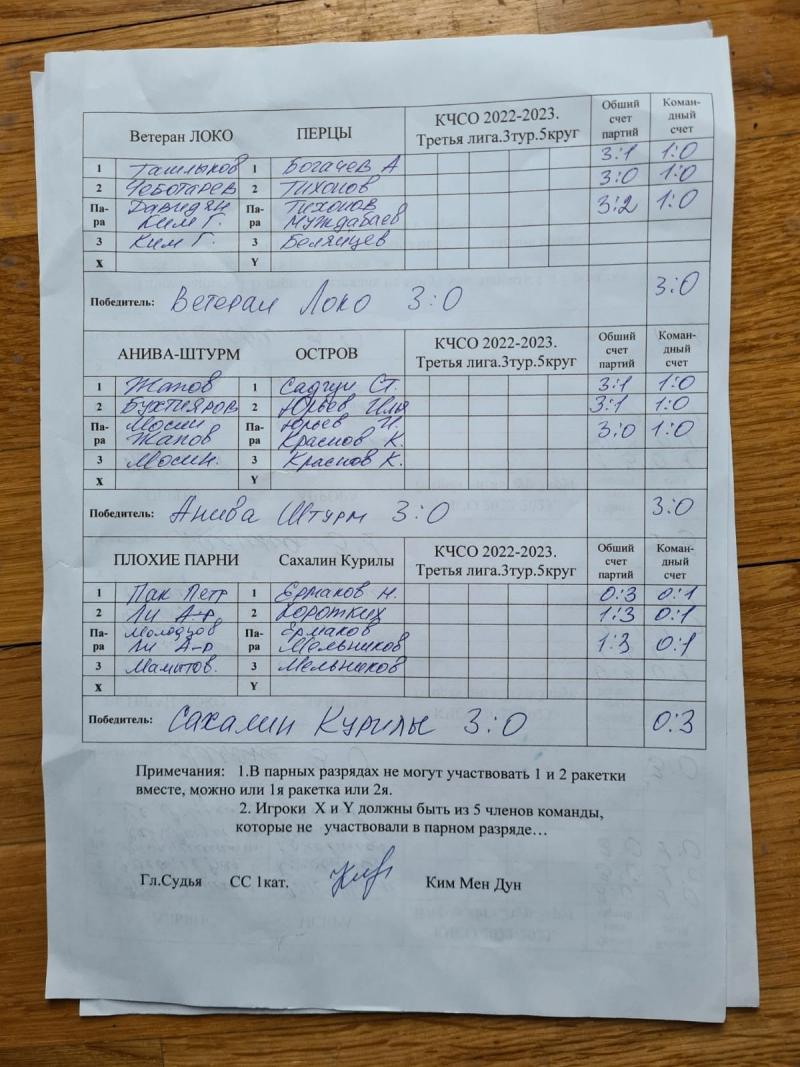 Ветеран ЛОКО ПЕРЦЫ КЧСО 2022-2023. Третья лига.3тур.5круг Общий счет партий Коман-дный счет
1 Ташлыков 1 Богачев А 3:1 1:0
2 Чеботарев 2 Тихонов 3:0 1:0
Па-ра Давидян Ким Г. Па-ра Тихонов Муждабаев 3:2 1:0
3 Ким Г. 3 Болянцев
X Y
Победитель: Ветеран Локо 3:0 3:0
АНИВА-ШТУРМ ОСТРОВ КЧСО 2022-2023. Третья лига.3тур.5круг Общий счет партий Коман-дный счет
1 Жапов 1 Садгун Ст. 3:1 1:0
2 Бухтияров 2 Юрьев Илья 3:1 1:0
Па-ра Мосин Жапов Па-ра Юрьев И. Краснов К. 3:0 1:0
3 Мосин. 3 Краснов К.
X Y
Победитель: Анива Штурм 3:0 3:0
ПЛОХИЕ ПАРНИ Сахалин Курилы КЧСО 2022-2023. Третья лига.3тур.5круг Общий счет партий Коман-дный счет
1 Пак Петр 1 Ермаков Н. 0:3 0:1
2 Ли А-р 2 Коротких 1:3 0:1
Па-ра Молодцов Ли А-р Па-ра Ермаков Мельников 1:3 0:1
3 Мамытов. 3 Мельников
X Y
Победитель: Сахалин Курилы 3:0 0:3
Примечания: 1.В парных разрядах не могут участвовать 1 и 2 ракетки
вместе, можно или 1я ракетка или 2я.
2. Игроки X и Y должны быть из 5 членов команды,
которые не участвовали в парном разряде…
Гл.Судья СС 1кат. Ким Мен Дун